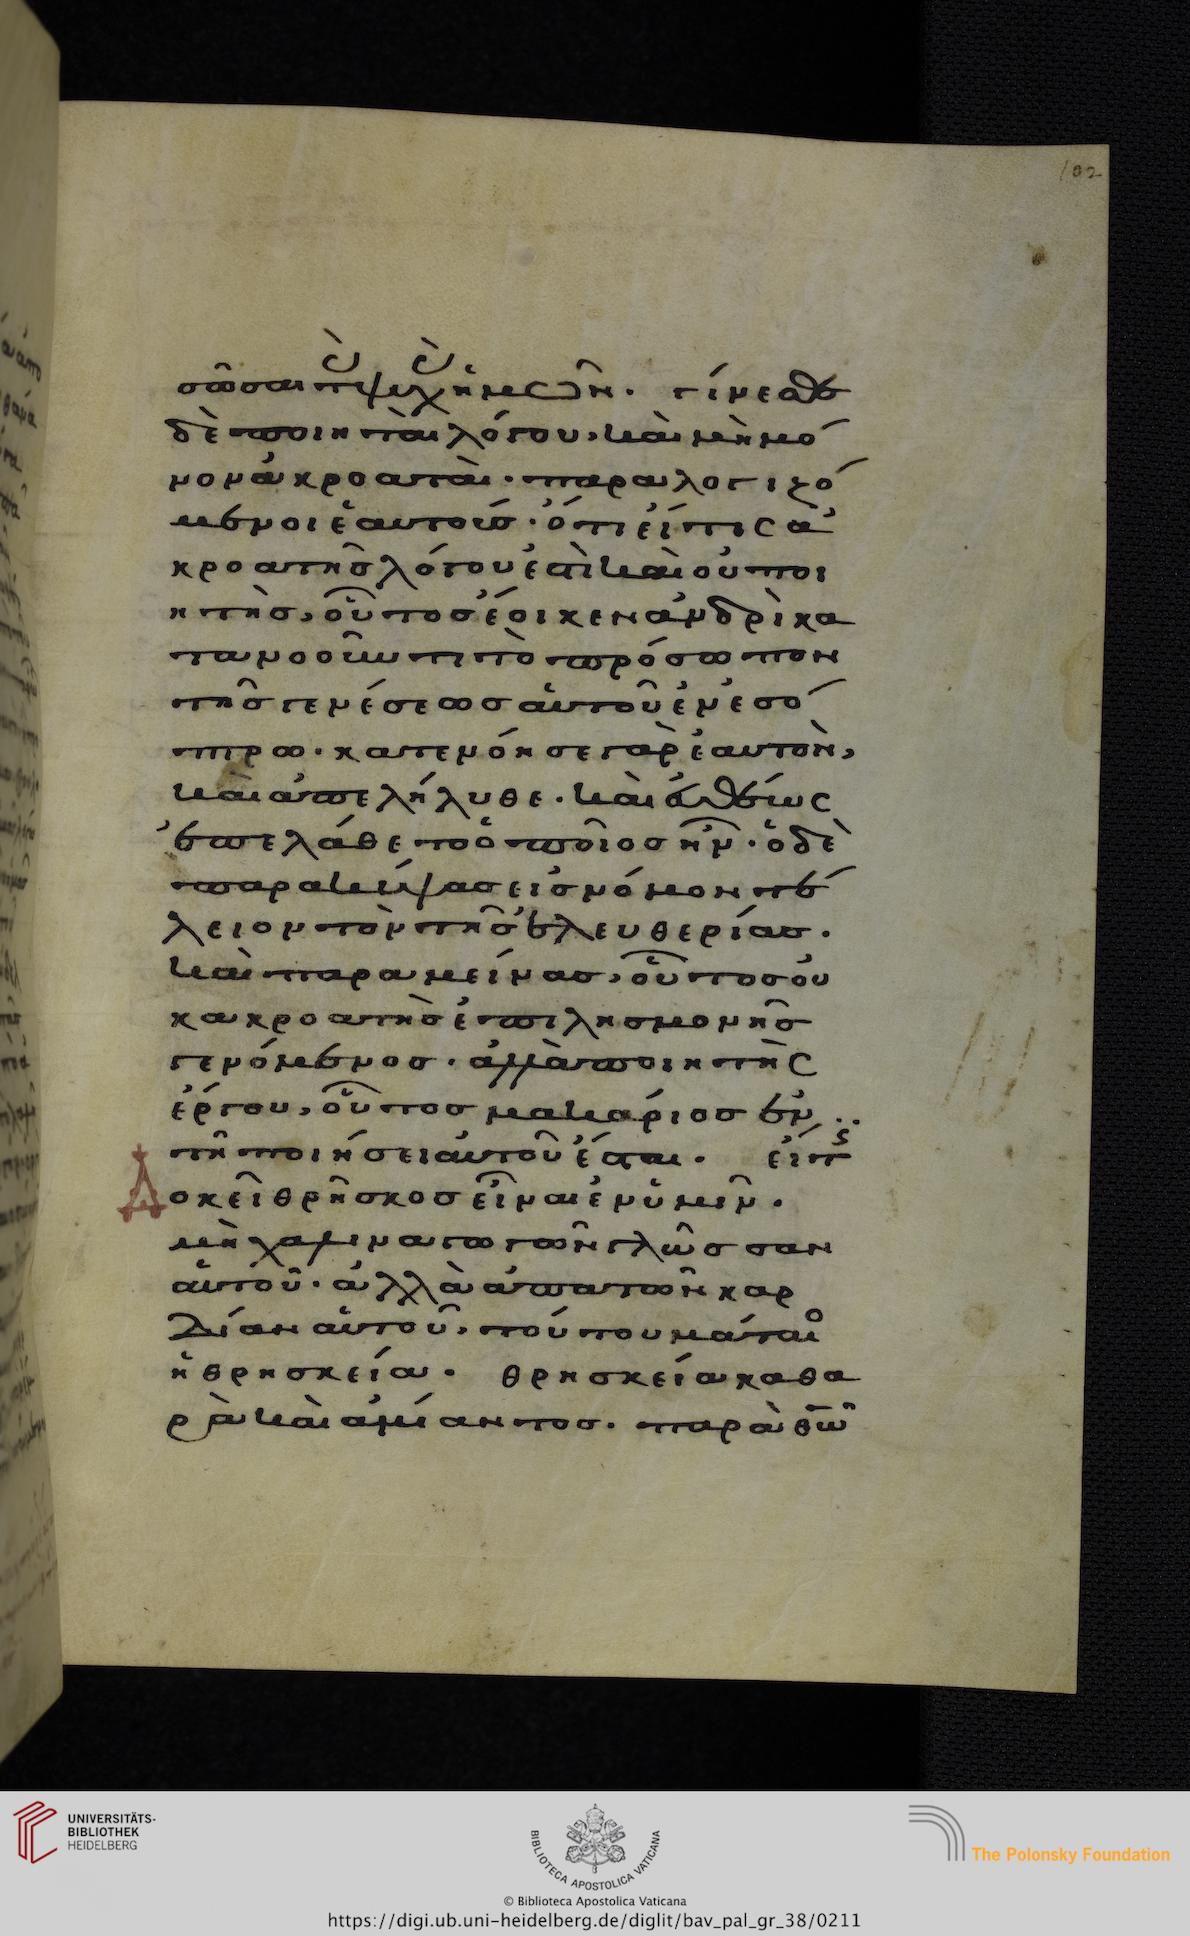 102
σῶσαι τ ψυχ ἡμῶν. γίνεσθε
δὲ ποιηταὶ λόγου, καὶ μὴ μό
νον ἀκροαταὶ. παραλογιζό
μενοι ἑαυτούς. ὅτι εἴ τις ἀ
κροατὴς λόγου ἐστὶ καὶ οὐ ποι
ητὴς, οὗτος ἔοικεν ἀνδρὶ κα
τανοοῦντι τὸ πρόσωπον
τῆς γενέσεως αὑτοῦ ἐν ἐσό
πτρω. κατενόησε γὰρ ἑαυτὸν,
καὶ ἀπελήλυθε. καὶ εὐθέως
ἐπελάθετο ὁποῖος ἦν. ὁ δὲ
παρακύψας εἰς νόμον τέ
λειον τὸν τῆς ἐλευθερίας.
καὶ παραμείνας, οὗτος οὐ
κ ἀκροατὴς ἐπιλησμονῆς
γενόμενος. ἀλλὰ ποιητὴς
ἔργου, οὗτος μακάριος ἐν
τῆ ποιήσει αὐτοῦ ἔσται. εἴ τς
Δοκεῖ θρῆσκος εἶναι ἐν ὑμῖν.
μὴ χαλιναγωγῶν γλῶσσαν
αὑτοῦ. ἀλλὰ ἀπατῶν καρ
δίαν αὑτοῦ, τούτου μάταιο
ἡ θρησκεία. θρησκεία καθα
ρὰ καὶ ἀμίαντος. παρὰ θῶ
UNIVERSITÄTS-
BIBLIOTHEK
HEIDELBERG
BIBLIOTECA APOSTOLICA VATICANA
© Biblioteca Apostolica Vaticana
The Polonsky Foundation
https://digi.ub.uni-heidelberg.de/diglit/bav_pal_gr_38/0211